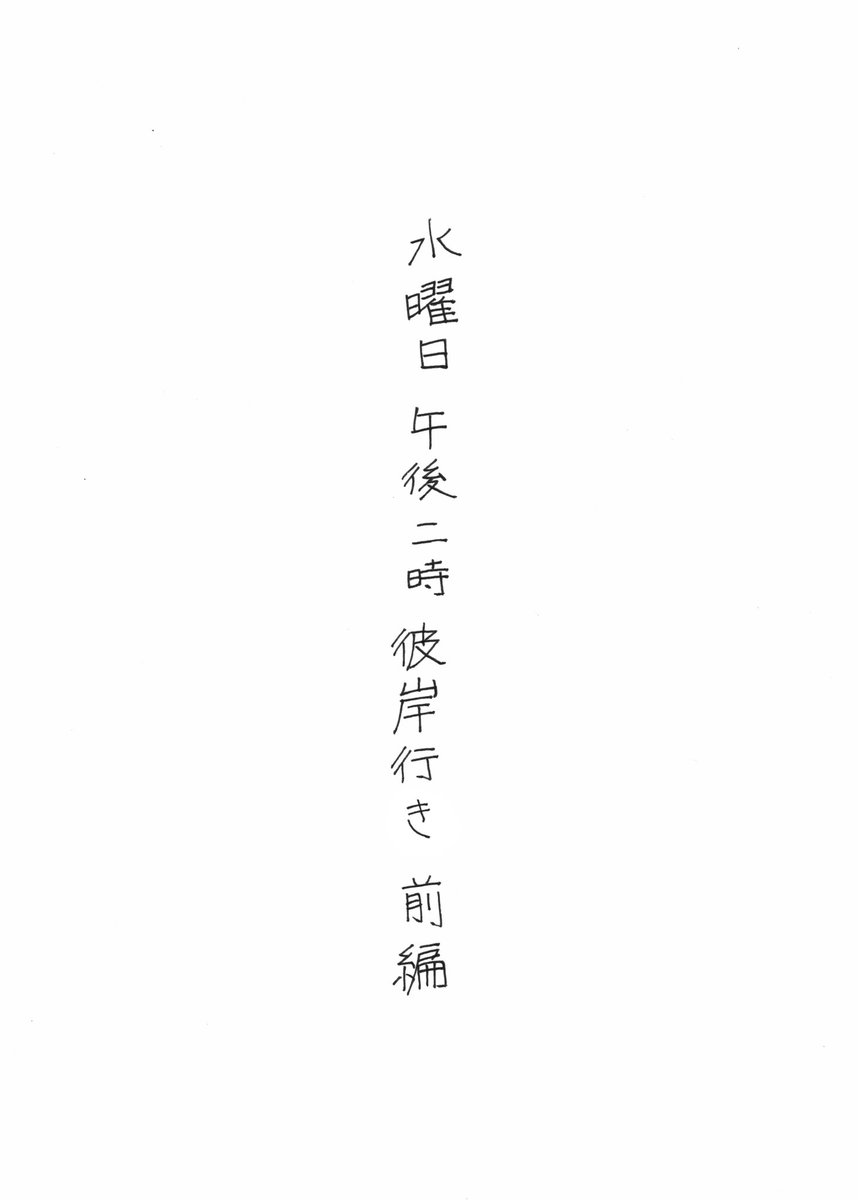 水曜日 午後二時 彼岸行き 前編